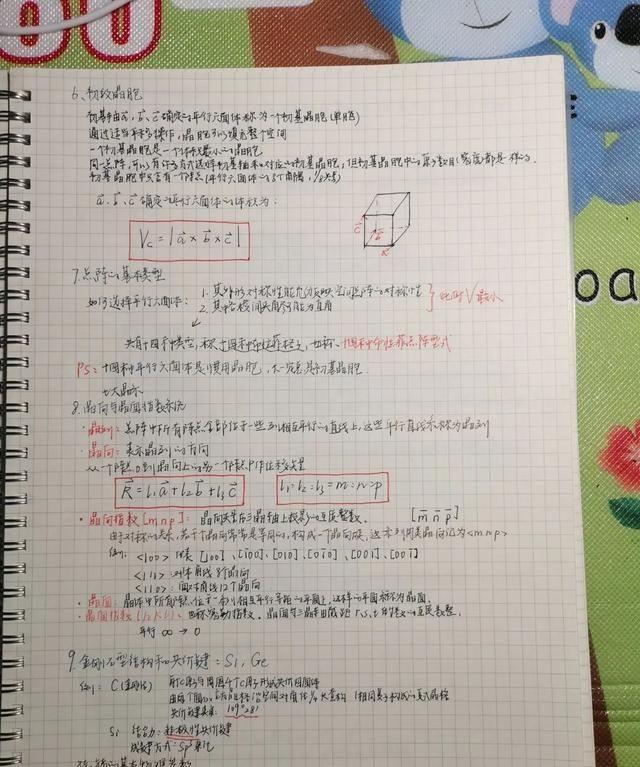 6. 初级晶胞
初基平面 a⃗, b⃗, c⃗ 确定的平行六面体称为一个初基晶胞(单胞)
通过适当平移操作,晶胞可以填充整个空间
一个初基晶胞是一个体积最小的晶胞
同一点阵,可以有许多方式选择初基轴和对应的初基晶胞,但初基晶胞中的原子数目(密度)都是一样的.
初基晶胞中只含有一个阵点(平行六面体的8个角隅, 1/8共享)
a⃗, b⃗, c⃗ 确定的平行六面体的体积为:
Vc = | a⃗ × b⃗ × c⃗ |
c⃗ b⃗ a⃗
7. 点阵的基本类型
如何选择平行六面体: 1. 其外形对称性能充分反映空间点阵的对称性
2. 其中各棱间夹角尽可能为直角
} 此时V最小
共有十四种类型,称十四种布拉菲格子,也称:十四种布拉菲点阵型式
PS: 十四种平行六面体是惯用晶胞,不一定是初基晶胞.
七大晶系
8. 晶向与晶面指数系统
·晶列: 点阵中所有阵点全部位于一系列相互平行的直线上,这些平行直线系称为晶列
·晶向: 表示晶列的方向
从一个阵点O到晶向上的另一个阵点P作位移矢量
R⃗ = l₁a⃗ + l₂b⃗ + l₃c⃗
l₁:l₂:l₃ = m:n:p
·晶向指数[m n p]: 晶向矢量在三晶轴上投影的互质整数. [m̄ n̄ p̄]
由于对称的关系,若干个晶向常常是等同的,构成一个晶向族,这系列同类晶向记为<m n p>
例: <100>代表 [100]、[1̄00]、[010]、[01̄0]、[001]、[001̄]
<111>: 对体角线 8个晶向
<110>: 面对角线12个晶向
·晶面: 晶体中所有阵点,位于一系列相互平行等距的平面上,这样的平面称为晶面.
·晶面指数(h k l): 也称密勒指数. 晶面与三晶轴截距 r.s.t 的倒数的互质整数.
平行 ∞ → 0
9. 金刚石型结构和共价键: Si, Ge
例: C(金刚石) 每个C原子与周围4个C原子形成共价四面体
共价键夹角: 109°28′
Si 结合力: 非极性共价键
成键方式: Sp³杂化